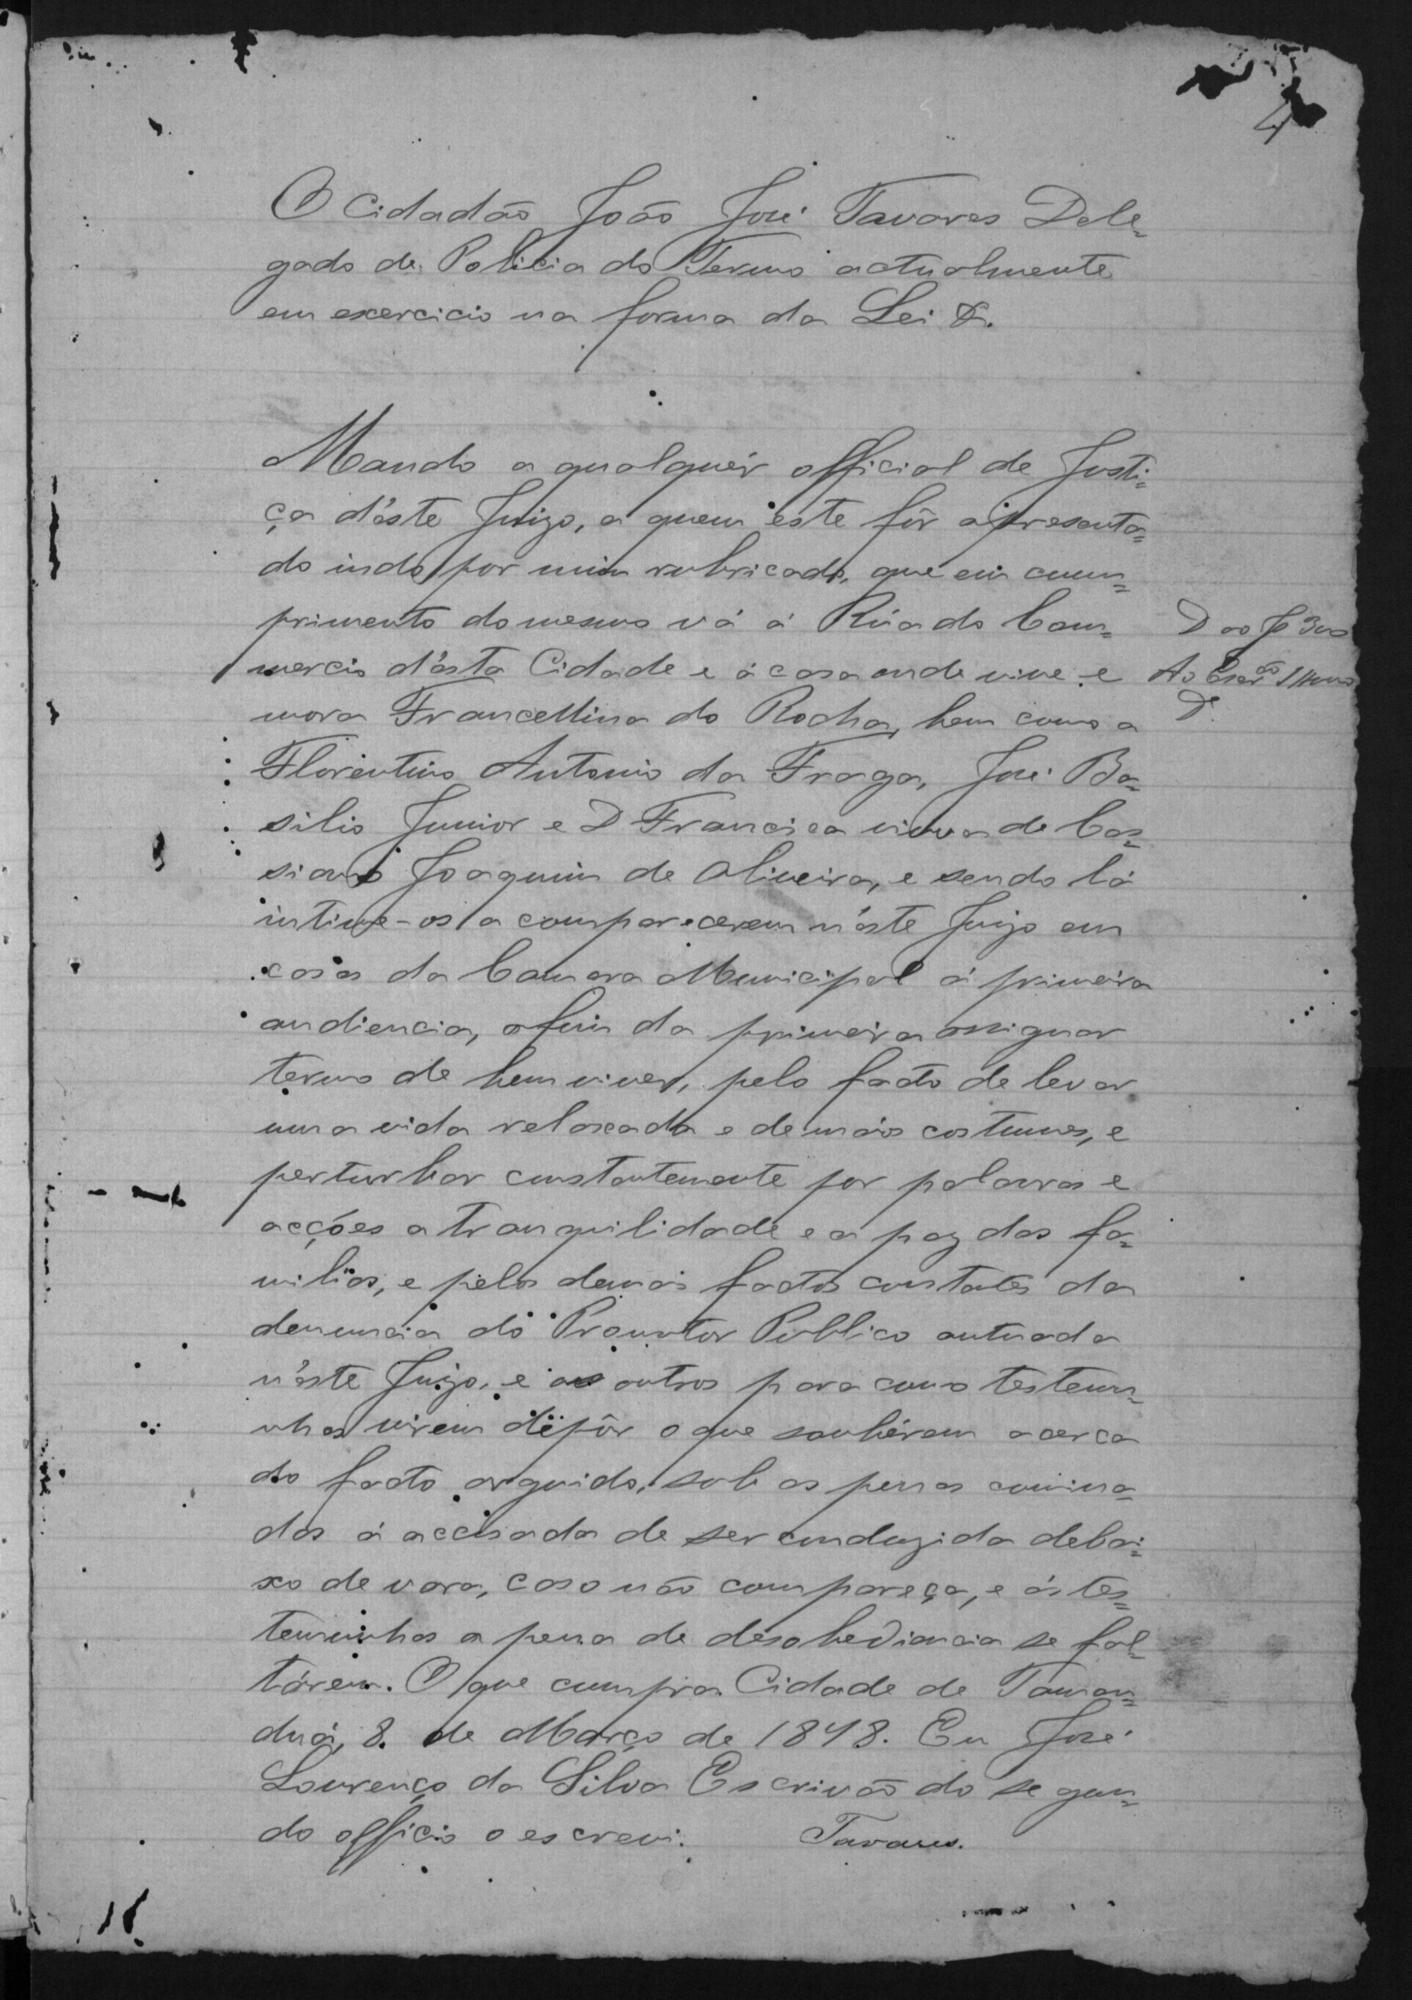 4
O Cidadão João José Tavares Dele-
gado de Policia do Termo actualmente
em exercicio na forma da Lei &.
Mando a qualquér official de Justi-
ça d'éste Juizo, a quem éste fôr apresenta-
do indo por mim rubricado, que em cum-
primento do mesmo vá á Rúa do Com-
mercio d'ésta Cidade e á casa onde vive e
mora Francellina do Rocha, bem como a
Florentino Antonio da Fraga, José Ba-
silio Junior e D Francisca viuva de Cas-
siano Joaquim de Oliveira, e sendo lá
intime-os a comparecerem n'éste Juizo em
casa da Camara Municipal á primeira
audiencia, afim da primeira assignar
termo de bem viver, pelo facto de levar
uma vida relaxada e de máos costumes, e
perturbar constantemente por palavras e
acções a tranquilidade e a paz das fa-
milias, e pelos demais factos constates da
denuncia do Promotor Publico autuada
n'éste Juizo, e os outros para como testemu-
nhas virem depôr o que soubérem acerca
do facto arguido, sob as penas comina-
das á accusada de ser conduzida debai-
xo de vara, caso não compareça, e ás tes-
temunhas a pena de desobediancia se fal-
tárem. O que cumpra. Cidade de Taman-
duá, 8. de Março de 1898. Eu José
Lourenço da Silva Escrivão do segun-
do officio o escrevi. Tavares.
D ao
Ao Escr.ão
D.